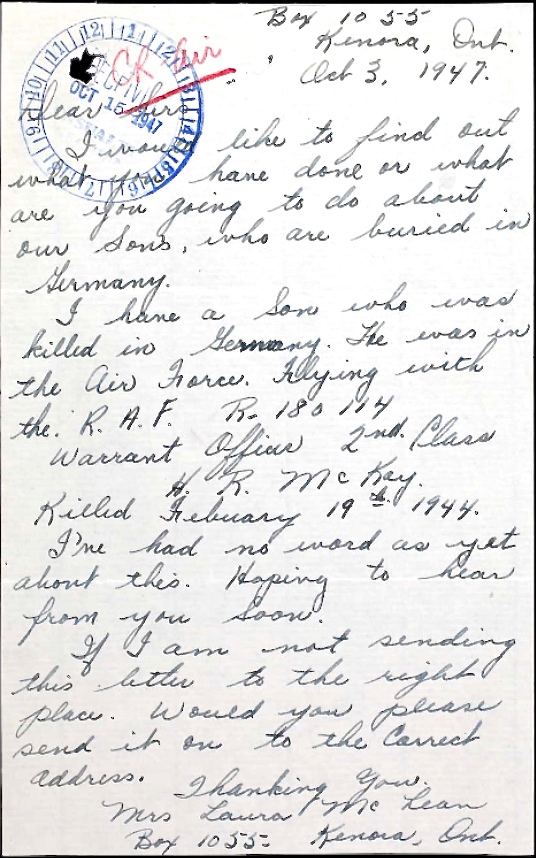 Box 1055
Kenora, Ont.
Oct 3, 1947.
CK Air
RECEIVED
OCT 15 1947
Dear Sirs
I would like to find out
what you have done or what
are you going to do about
our Sons, who are buried in
Germany.
I have a Son who was
killed in Germany. He was in
the Air Force. Flying with
the R.A.F. R-180114
Warrant Officer 2nd. Class
H. R. McKay.
Killed Febuary 19th 1944.
I've had no word as yet
about this. Hoping to hear
from you soon.
If I am not sending
this letter to the right
place. Would you please
send it on to the Correct
address.
Thanking You.
Mrs Laura McLean
Box 1055 Kenora, Ont.